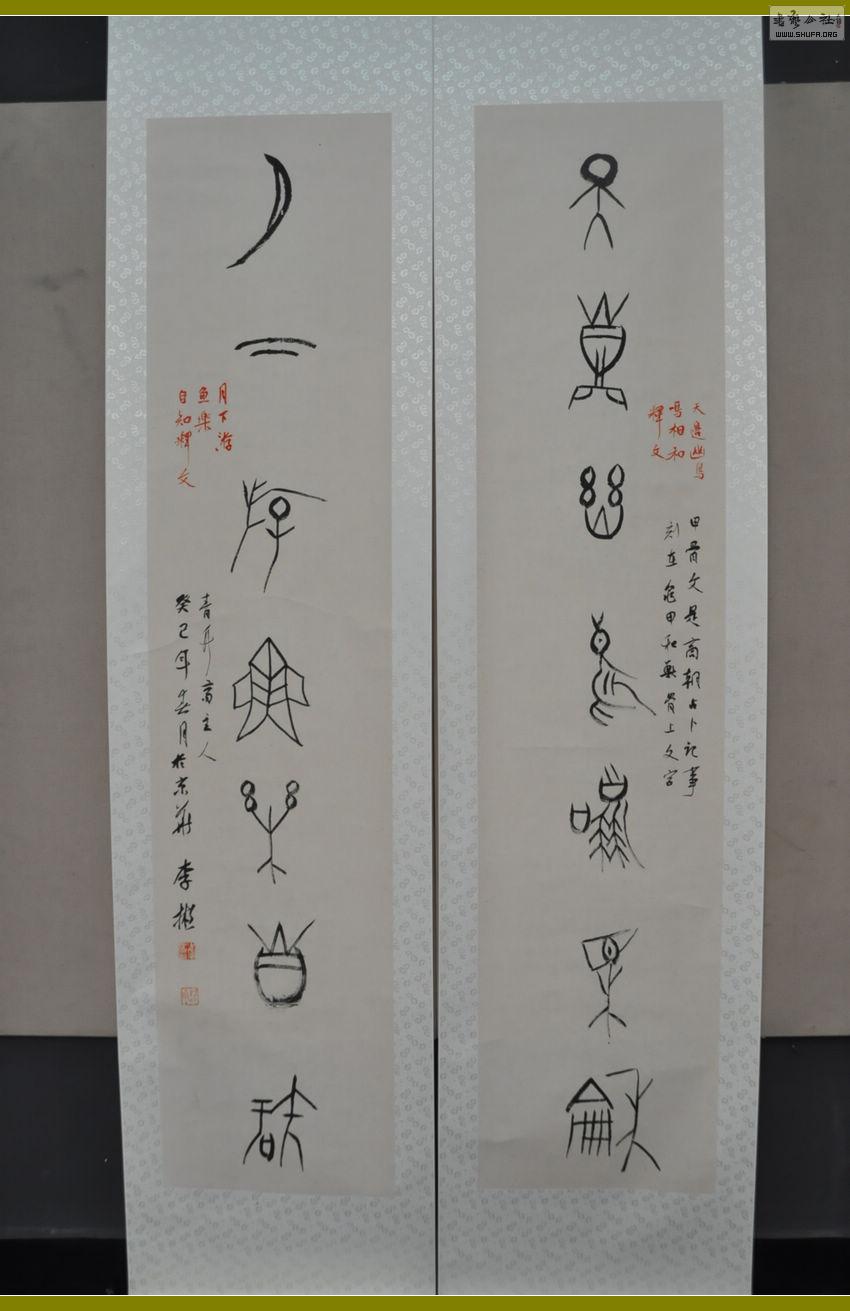 天邊幽鳥鳴相和
天邊幽鳥
鳴相和
釋文
甲骨文是商朝占卜記事
刻在龜甲和獸骨上文字
月下游魚樂自知
月下游
魚樂
自知釋文
齋主人
癸巳年春月於京華 李
WWW.SHUFA.ORG